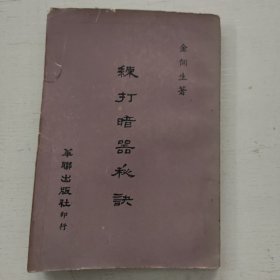 金倜生著
練打暗器秘訣
華聯出版社印行